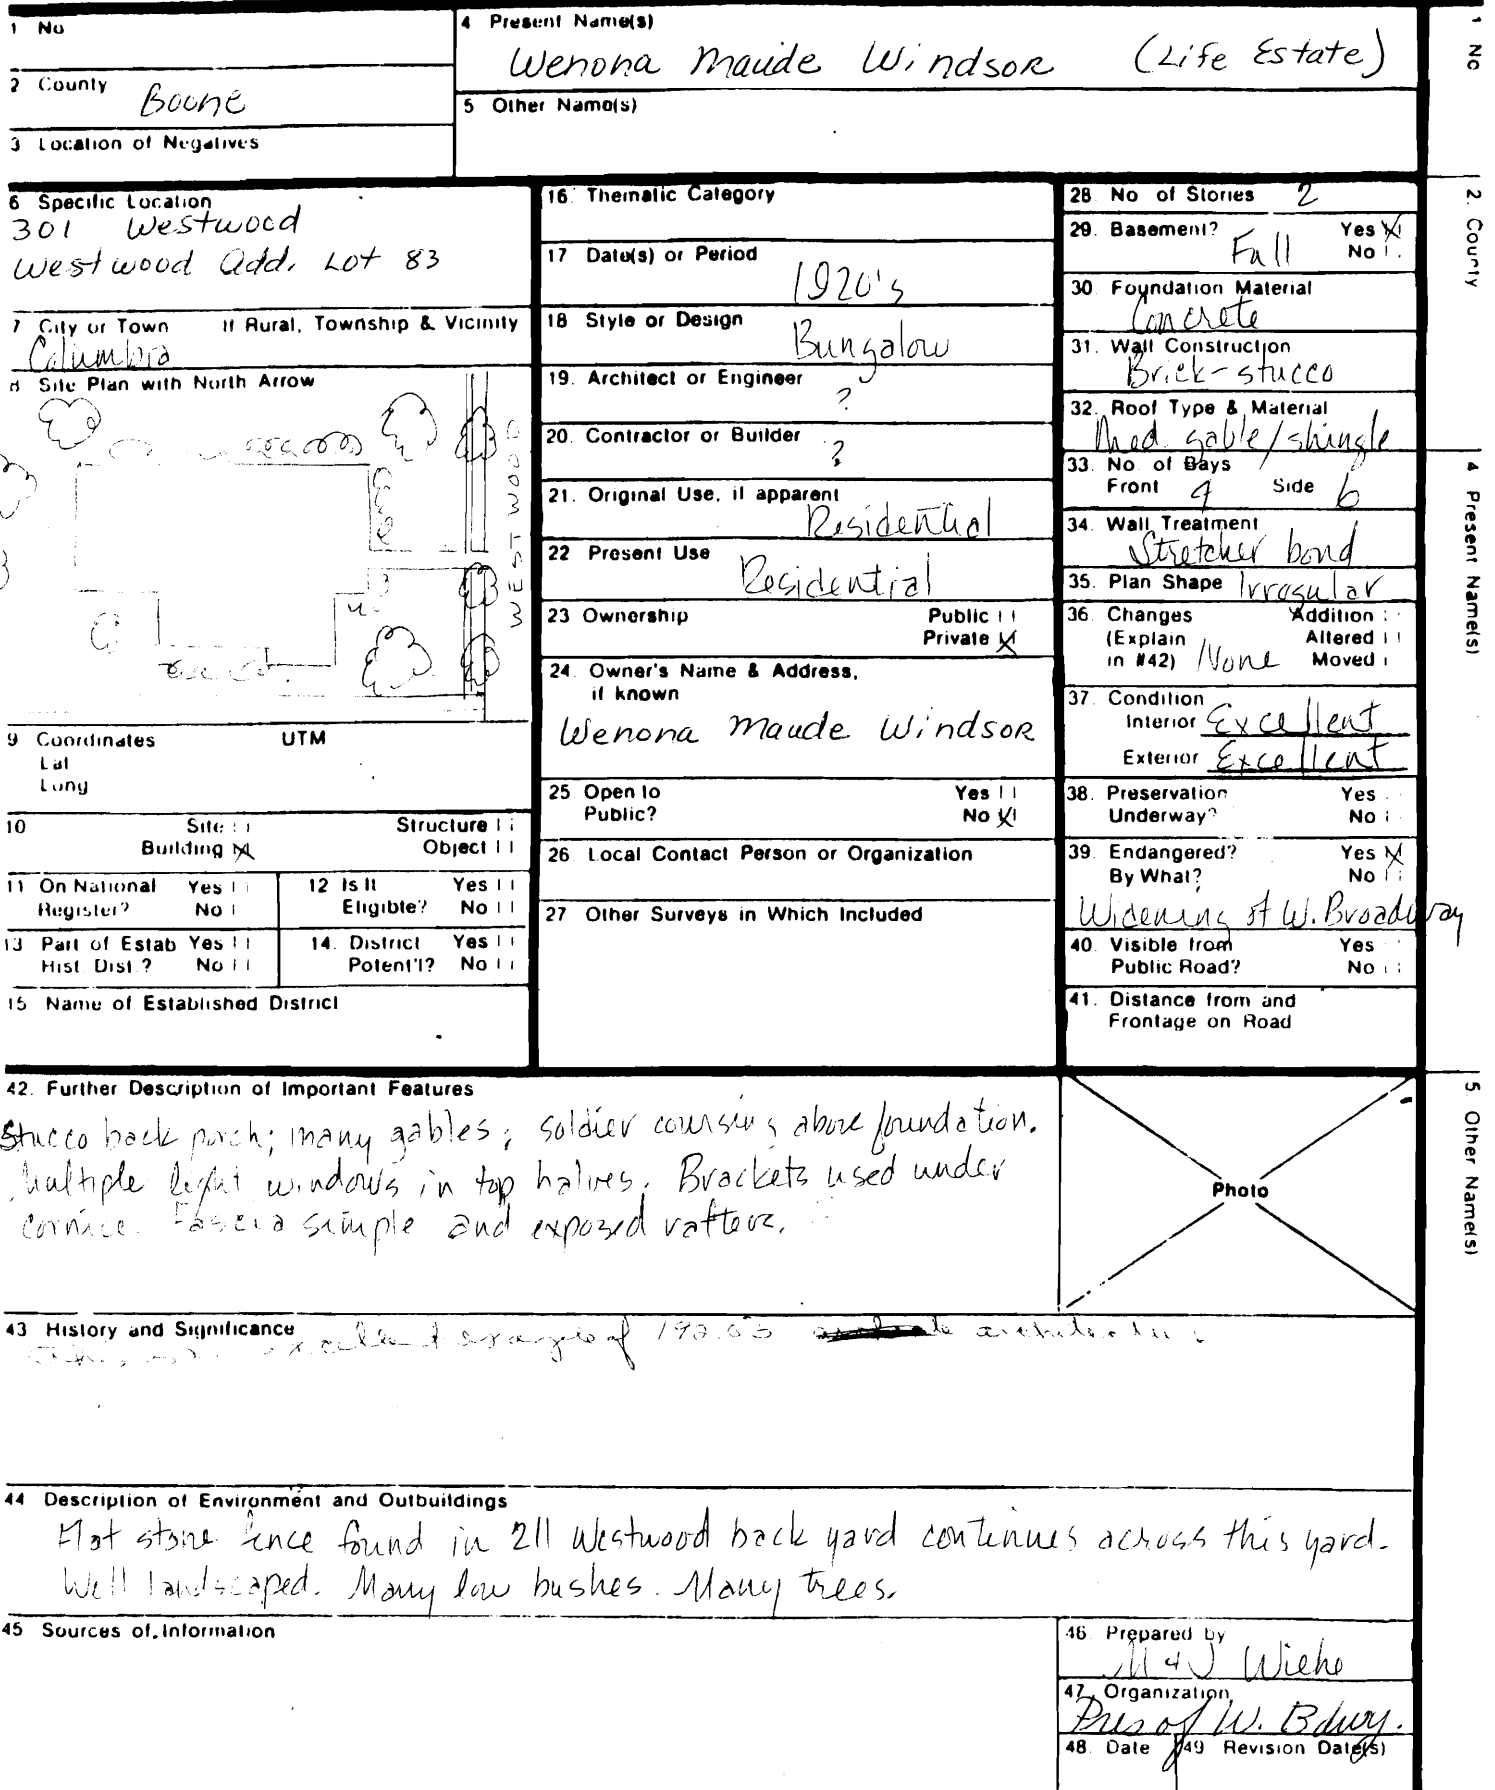 1 No
4 Present Name(s)
Wenona Maude Windsor (Life Estate)
2 County
Boone
5 Other Name(s)
3 Location of Negatives
6 Specific Location
301 Westwood
Westwood Add. Lot 83
7 City or Town If Rural, Township & Vicinity
Columbia
8 Site Plan with North Arrow
WESTWOOD
9 Coordinates UTM
Lat
Long
10 Site
Structure
Building X
Object
11 On National Register? Yes No
12 Is It Eligible? Yes No
13 Part of Estab Hist. Dist.? Yes No
14. District Potent'l? Yes No
15 Name of Established District
16. Thematic Category
17 Date(s) or Period
1920's
18 Style or Design
Bungalow
19. Architect or Engineer
?
20. Contractor or Builder
?
21. Original Use, if apparent
Residential
22 Present Use
Residential
23 Ownership Public
Private X
24. Owner's Name & Address,
if known
Wenona Maude Windsor
25 Open to Yes
Public? No X
26. Local Contact Person or Organization
27 Other Surveys in Which Included
28. No of Stories 2
29. Basement? Yes X
Full No
30. Foundation Material
Concrete
31. Wall Construction
Brick-stucco
32. Roof Type & Material
Med. gable/shingle
33. No. of Bays
Front 4 Side 6
34. Wall Treatment
Stretcher bond
35. Plan Shape Irregular
36. Changes Addition
(Explain Altered
in #42) None Moved
37. Condition
Interior Excellent
Exterior Excellent
38. Preservation Yes
Underway? No
39. Endangered? Yes X
By What? No
Widening of W. Broadway
40. Visible from Yes
Public Road? No
41. Distance from and
Frontage on Road
42. Further Description of Important Features
Stucco back porch; many gables; soldier coursing above foundation.
Multiple light windows in top halves. Brackets used under
cornice. Fascia simple and exposed rafters.
Photo
43 History and Significance
excellent example of 1920's architecture
44 Description of Environment and Outbuildings
Flat stone fence found in 211 Westwood back yard continues across this yard.
Well landscaped. Many low bushes. Many trees.
45 Sources of Information
46. Prepared by
M & J Wiehe
47. Organization
Pres of W. Bdwy.
48. Date 49 Revision Date(s)
1 No
2. County
4 Present Name(s)
5 Other Name(s)